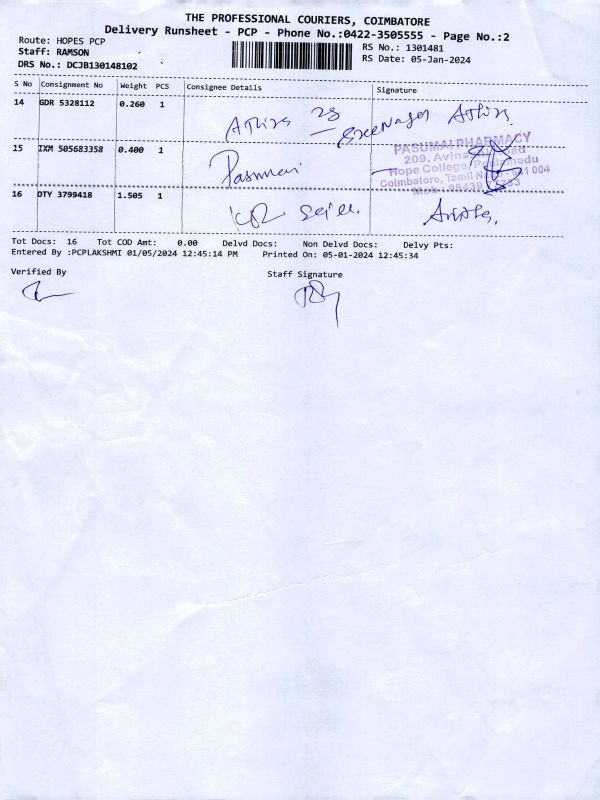 THE PROFESSIONAL COURIERS, COIMBATORE
Delivery Runsheet - PCP - Phone No.:0422-3505555 - Page No.:2
Route: HOPES PCP
Staff: RAMSON
DRS No.: DCJB130148102
RS No.: 1301481
RS Date: 05-Jan-2024
S No Consignment No Weight PCS Consignee Details Signature
14 GDR 5328112 0.260 1
Sreenager
15 IXM 505683358 0.400 1
PASUMAI PHARMACY
209,
Hope College, Peelamedu
Coimbatore, Tamil
16 DTY 3799418 1.505 1
Tot Docs: 16 Tot COD Amt: 0.00 Delvd Docs: Non Delvd Docs: Delvy Pts:
Entered By :PCPLAKSHMI 01/05/2024 12:45:14 PM Printed On: 05-01-2024 12:45:34
Verified By Staff Signature